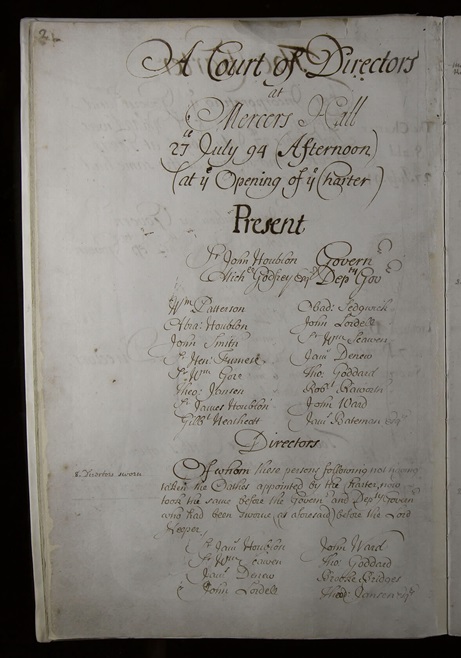 2
A Court of Directors
at
Mercers Hall
27 July 94 Afternoon
(at yᵉ Opening of yᵉ Charter)
Present
Sʳ John Houblon Governʳ
Michˡ Godfrey Esqʳ Depᵗʸ Govʳ
Wᵐ Patterson Obad: Sedgwick
Abra: Houblon John Lordell
John Smith Sʳ Wᵐ Scawen
Sʳ Hen: Furnese Jamˢ Denew
Sʳ Wᵐ Gore Tho: Goddard
Theo: Jansen Robᵗ Raworth
Sʳ James Houblon John Ward
Gilbᵗ Heathcott Jamˢ Bateman Esqʳˢ
Directors
8. Directors sworn
Of whom those persons following not having
taken the Oathes appointed by the Charter, now
took the same before the Governʳ and Depᵗʸ Governʳ
who had been sworne (as aforesaid) before the Lord
Keeper,
Sʳ Jamˢ Houblon John Ward
Sʳ Wᵐ Scawen Tho: Goddard
Jamˢ Denew Brooke Bridges
John Lordell Theo: Jansen Esqʳˢ